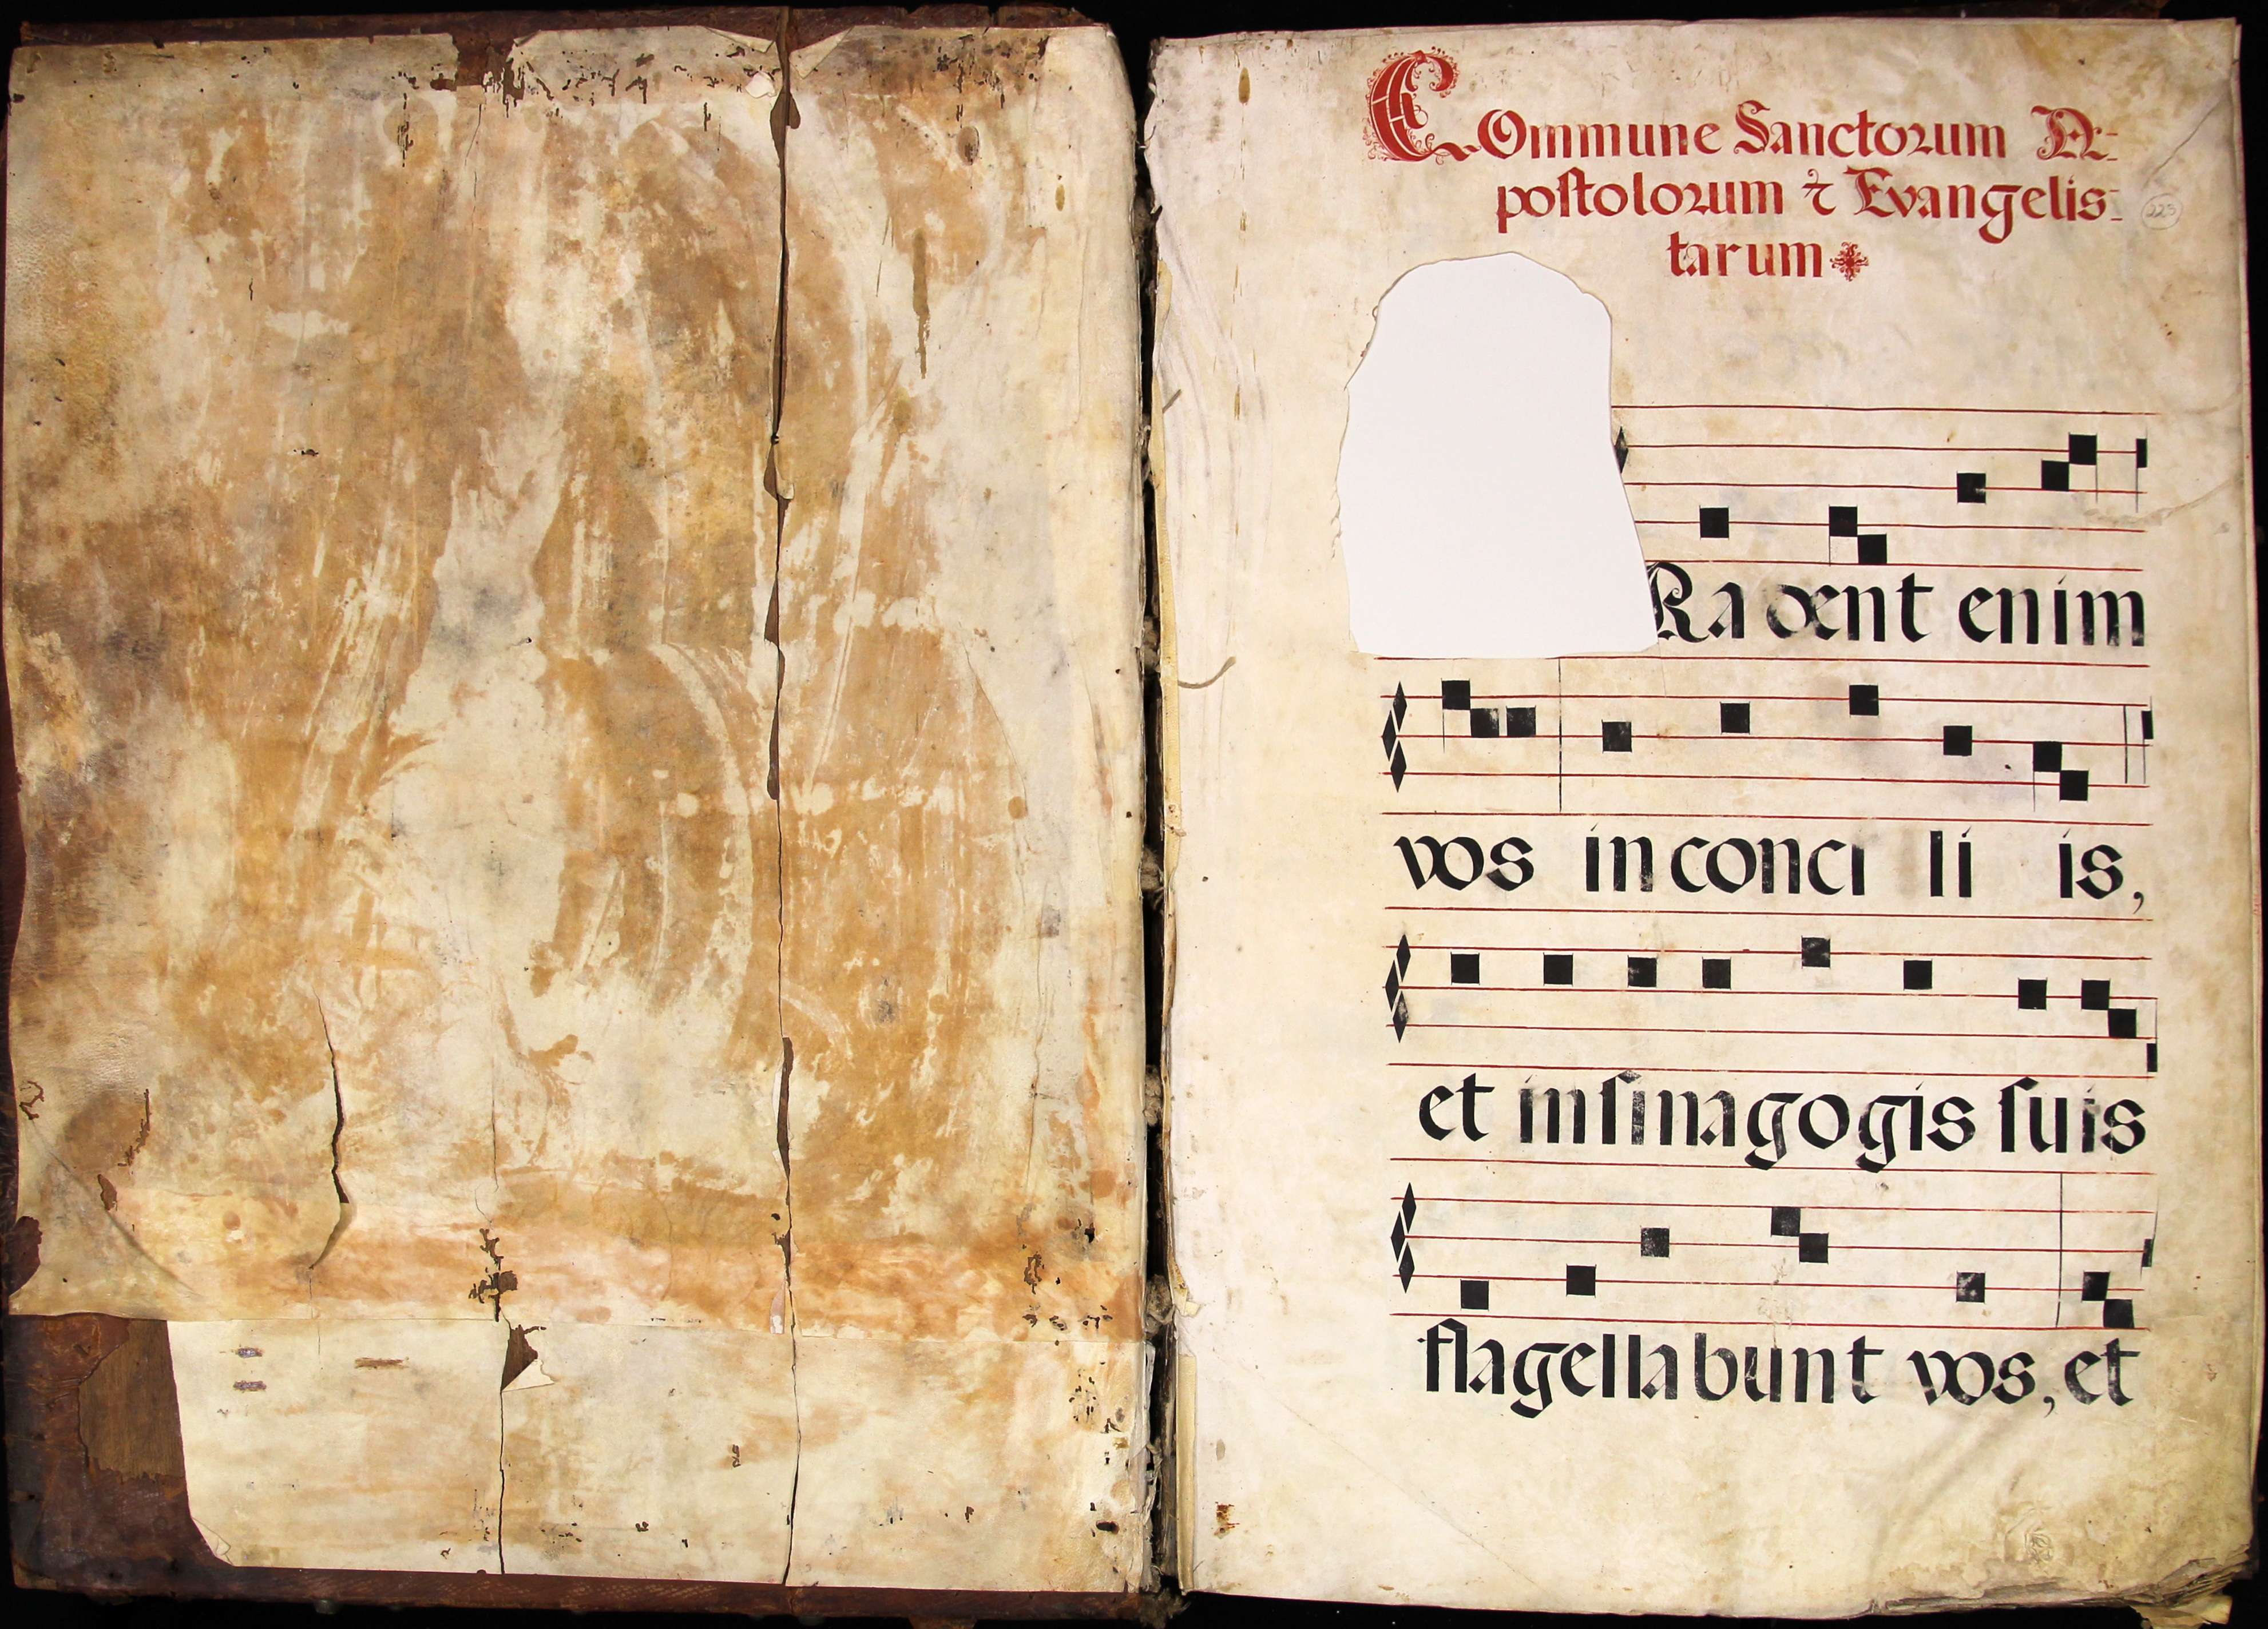 COmmune Sanctorum A-
postolorum & Evangelis-
tarum
225
Radent enim
vos in conci li is,
et in sinagogis suis
flagellabunt vos, et